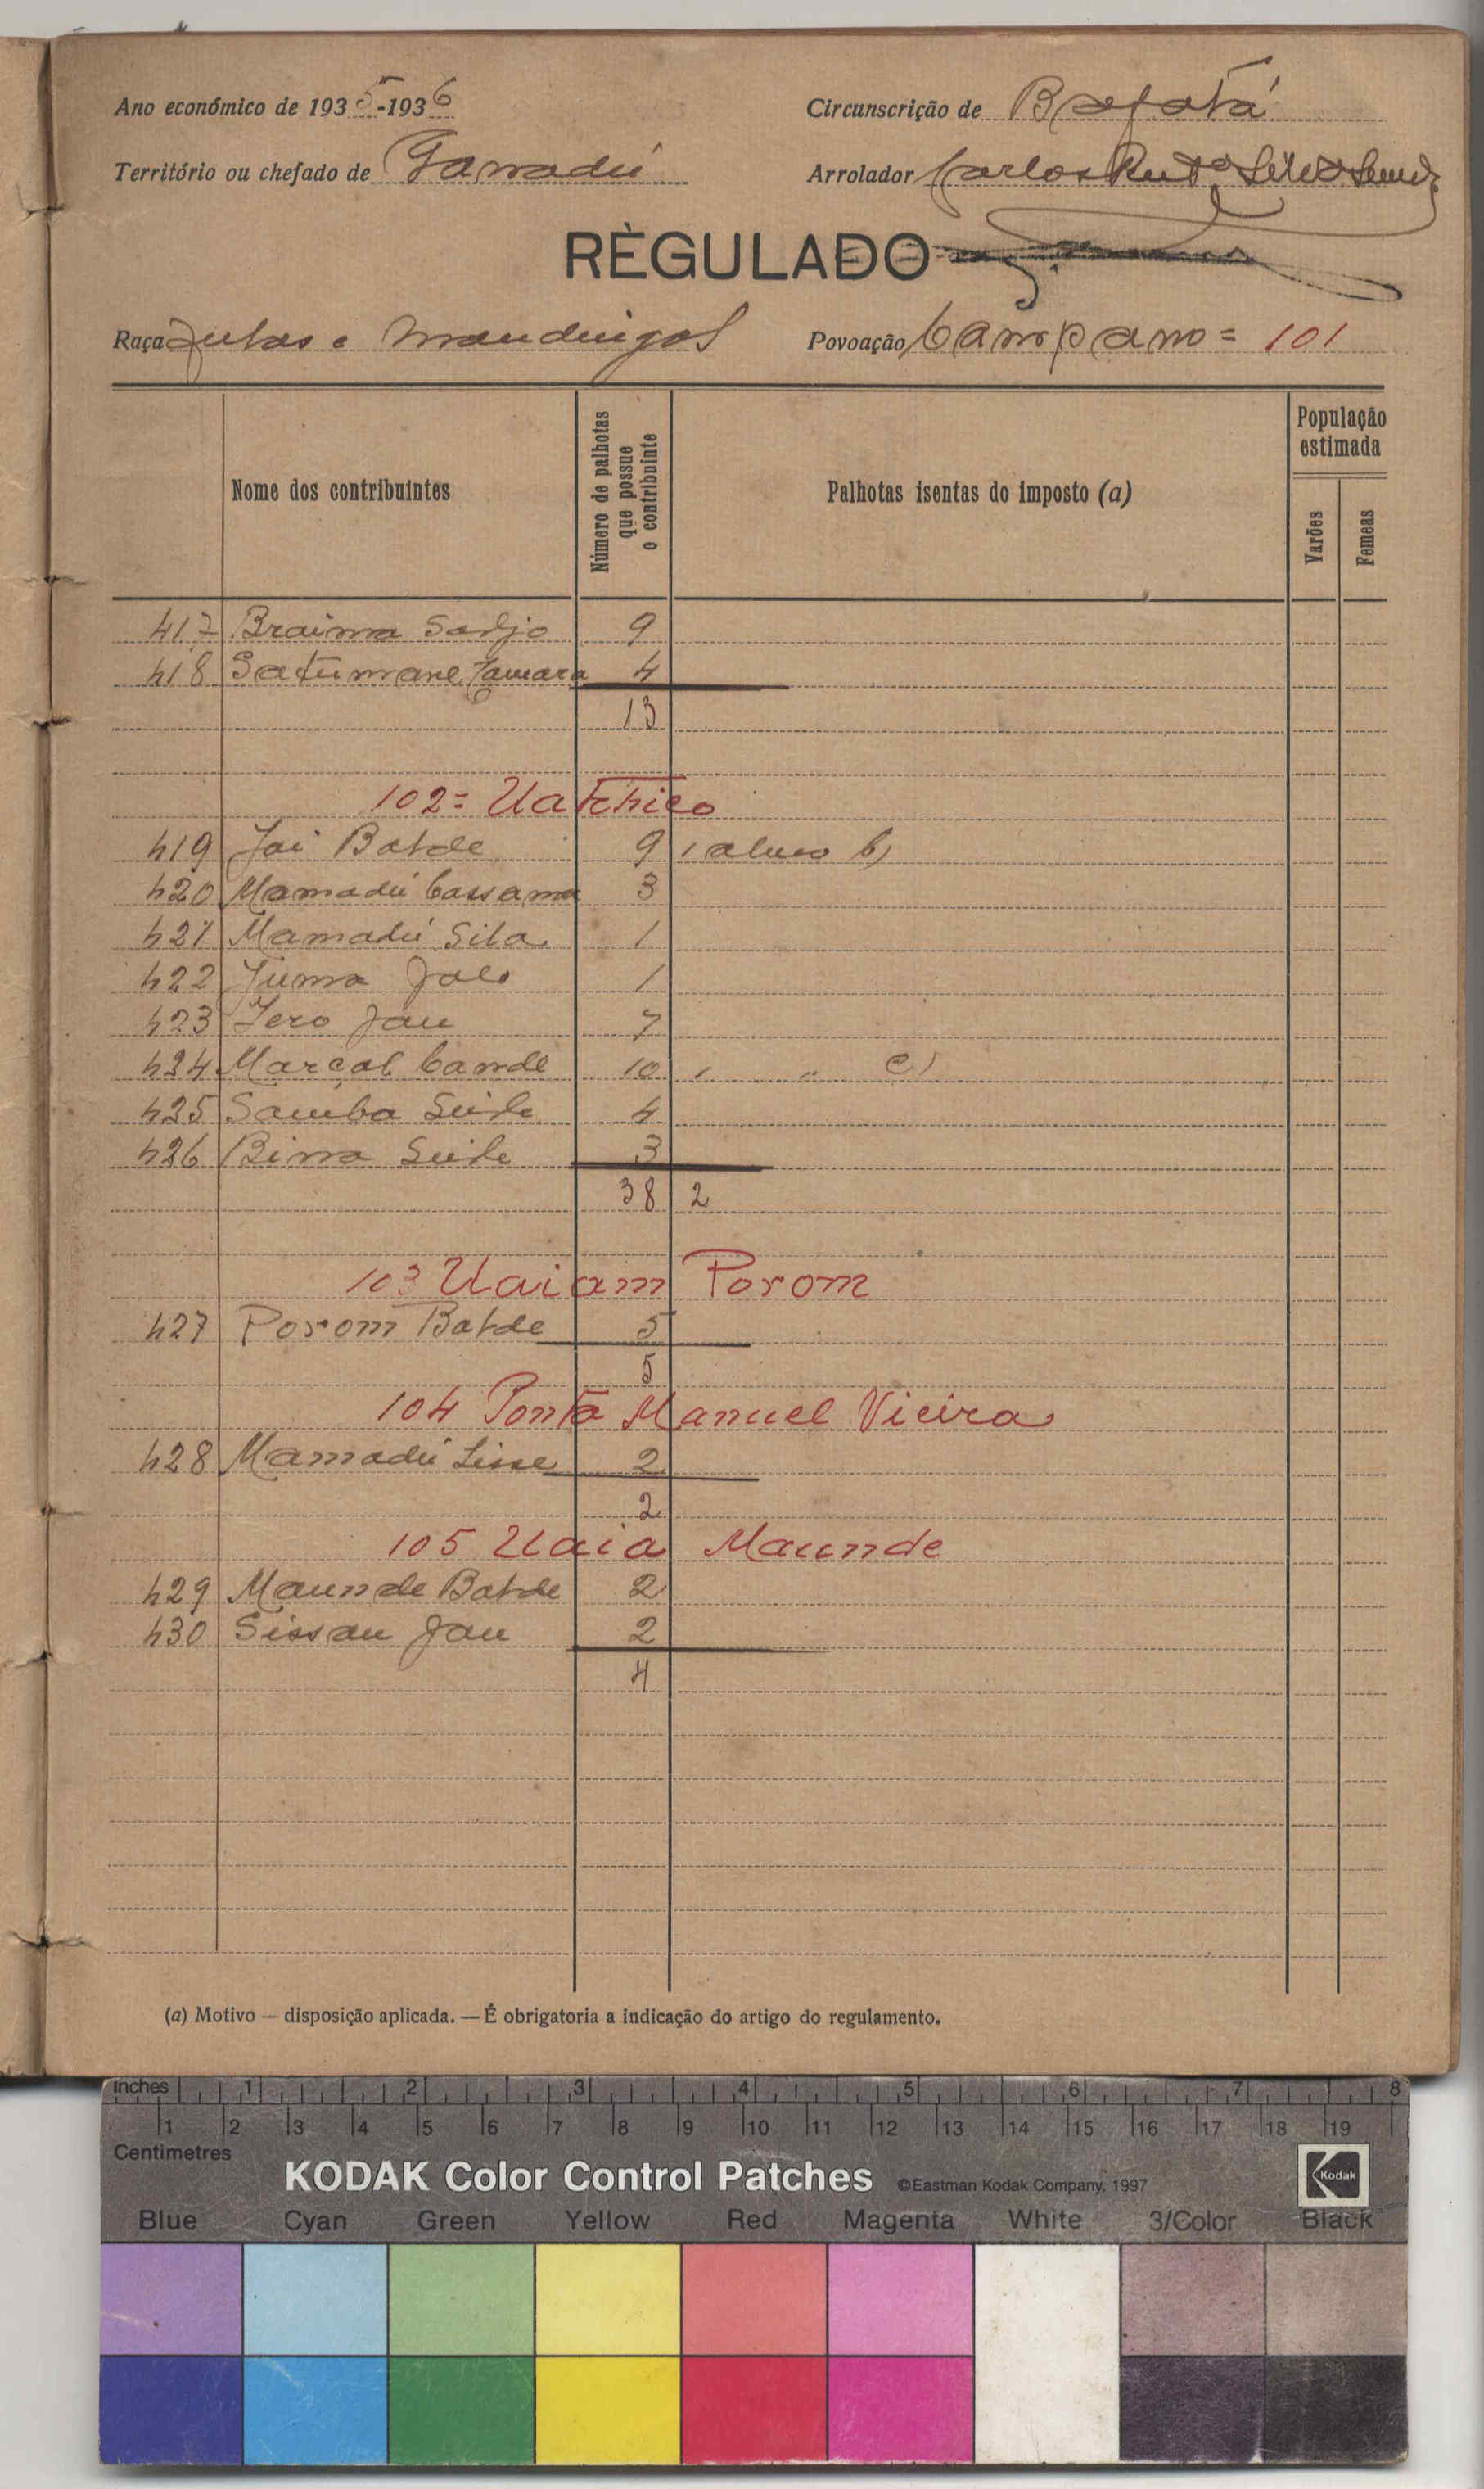 Ano económico de 1935-1936
Circunscrição de Bafatá
Território ou chefado de
Arrolador Carlos
RÈGULADO
Raça Fulas e mandingas
Povoação Campano = 101
Nome dos contribuintes
Número de palhotas que possue o contribuinte
Palhotas isentas do imposto (a)
População estimada
Varões
Femeas
417 Braima Sadjo 9
418 Camara 4
13
102 = Uatchico
419 Jai Balde 9 (aluno b)
420 Mamadú Cassama 3
421 Mamadú Sila 1
422 Juma Jalo 1
423 Jau 7
424 Marçal Cande 10 " " e)
425 Samba Seide 4
426 Binra Seide 3
38 2
103 Uaiam Porom
427 Porom Balde 5
5
104 Ponta Manuel Vieira
428 Mamadú Sisse 2
2
105 Uaia Maunde
429 Maunde Balde 2
430 Sissau Jau 2
4
(a) Motivo — disposição aplicada. — É obrigatoria a indicação do artigo do regulamento.
inches 1 2 3 4 5 6 7 8
1 2 3 4 5 6 7 8 9 10 11 12 13 14 15 16 17 18 19
Centimetres
KODAK Color Control Patches ©Eastman Kodak Company, 1997 Kodak
Blue Cyan Green Yellow Red Magenta White 3/Color Black